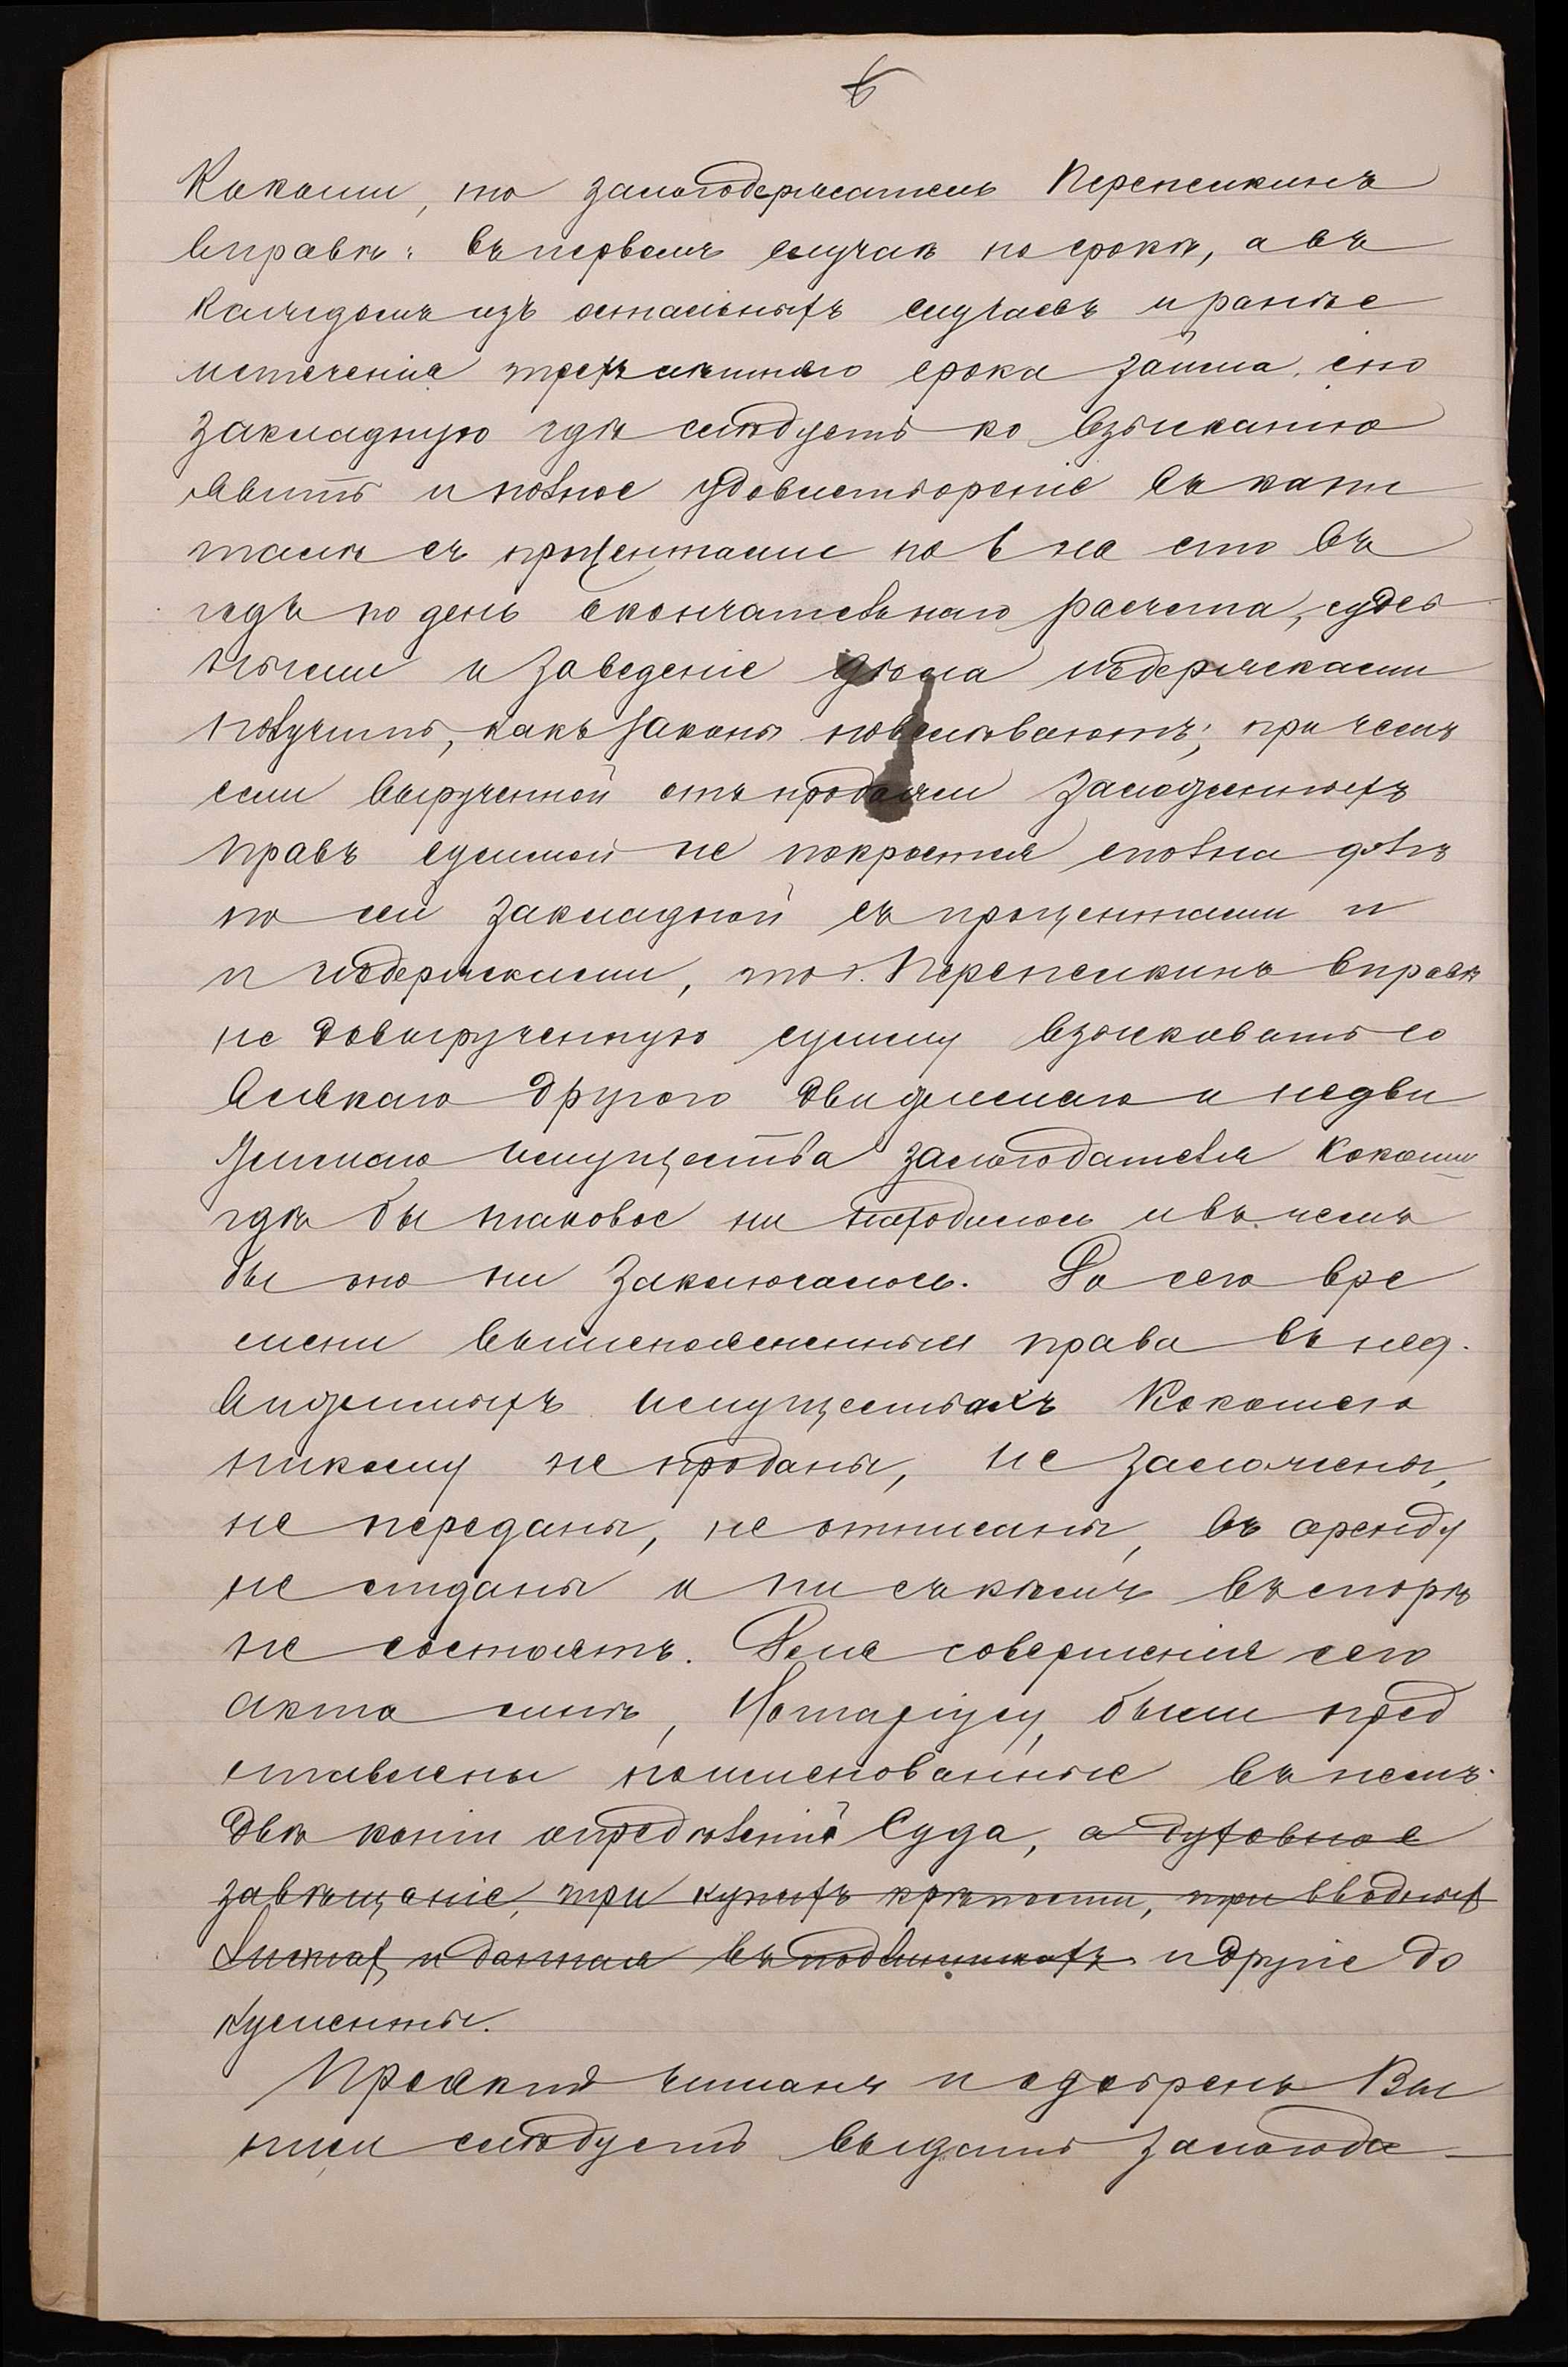 6
Кокоши, то залогодержатель Перепелкинъ
вправѣ: въ первомъ случаѣ по срокѣ, а въ
каждомъ изъ остальныхъ случаевъ и ранѣе
истеченія трехъ лѣтняго срока займа, сію
закладную гдѣ слѣдуетъ ко взысканію
явить и полное удовлетвореніе въ капи
талѣ съ процентами по 6 на сто въ
годъ по день окончательнаго расчета, судеб
ными и за веденіе дѣла издержками
получить, какъ законы повелѣваютъ; при чемъ
если вырученной отъ продажи заложенныхъ
правъ суммой не покроется сполна долгъ
по сей закладной съ процентами и
и издержками, то г. Перепелкинъ вправѣ
не довырученную сумму взыскивать со
всякаго другого движимаго и недви
жимаго имущества залогодателя Кокоши
гдѣ бы таковое ни находилось и въ чемъ
бы оно ни заключалось. До сего вре
мени вышепоясненныя права въ нед
вижимыхъ имуществахъ Кокошею
никому не проданы, не заложены,
не переданы, не отписаны, въ аренду
не отданы и ни съ кѣмъ въ спорѣ
не состоятъ. Для совершенія сего
акта мнѣ, Нотаріусу, были пред
ставлены поименованные въ немъ
двѣ копіи опредѣленій Суда, а духовное
завѣщаніе, три купчихъ крѣпости, три вводныхъ
листа, и данная въ подлинникахъ и другіе до
кументы.
Проектъ читанъ и одобренъ Вы
пись слѣдуетъ выдать залогода